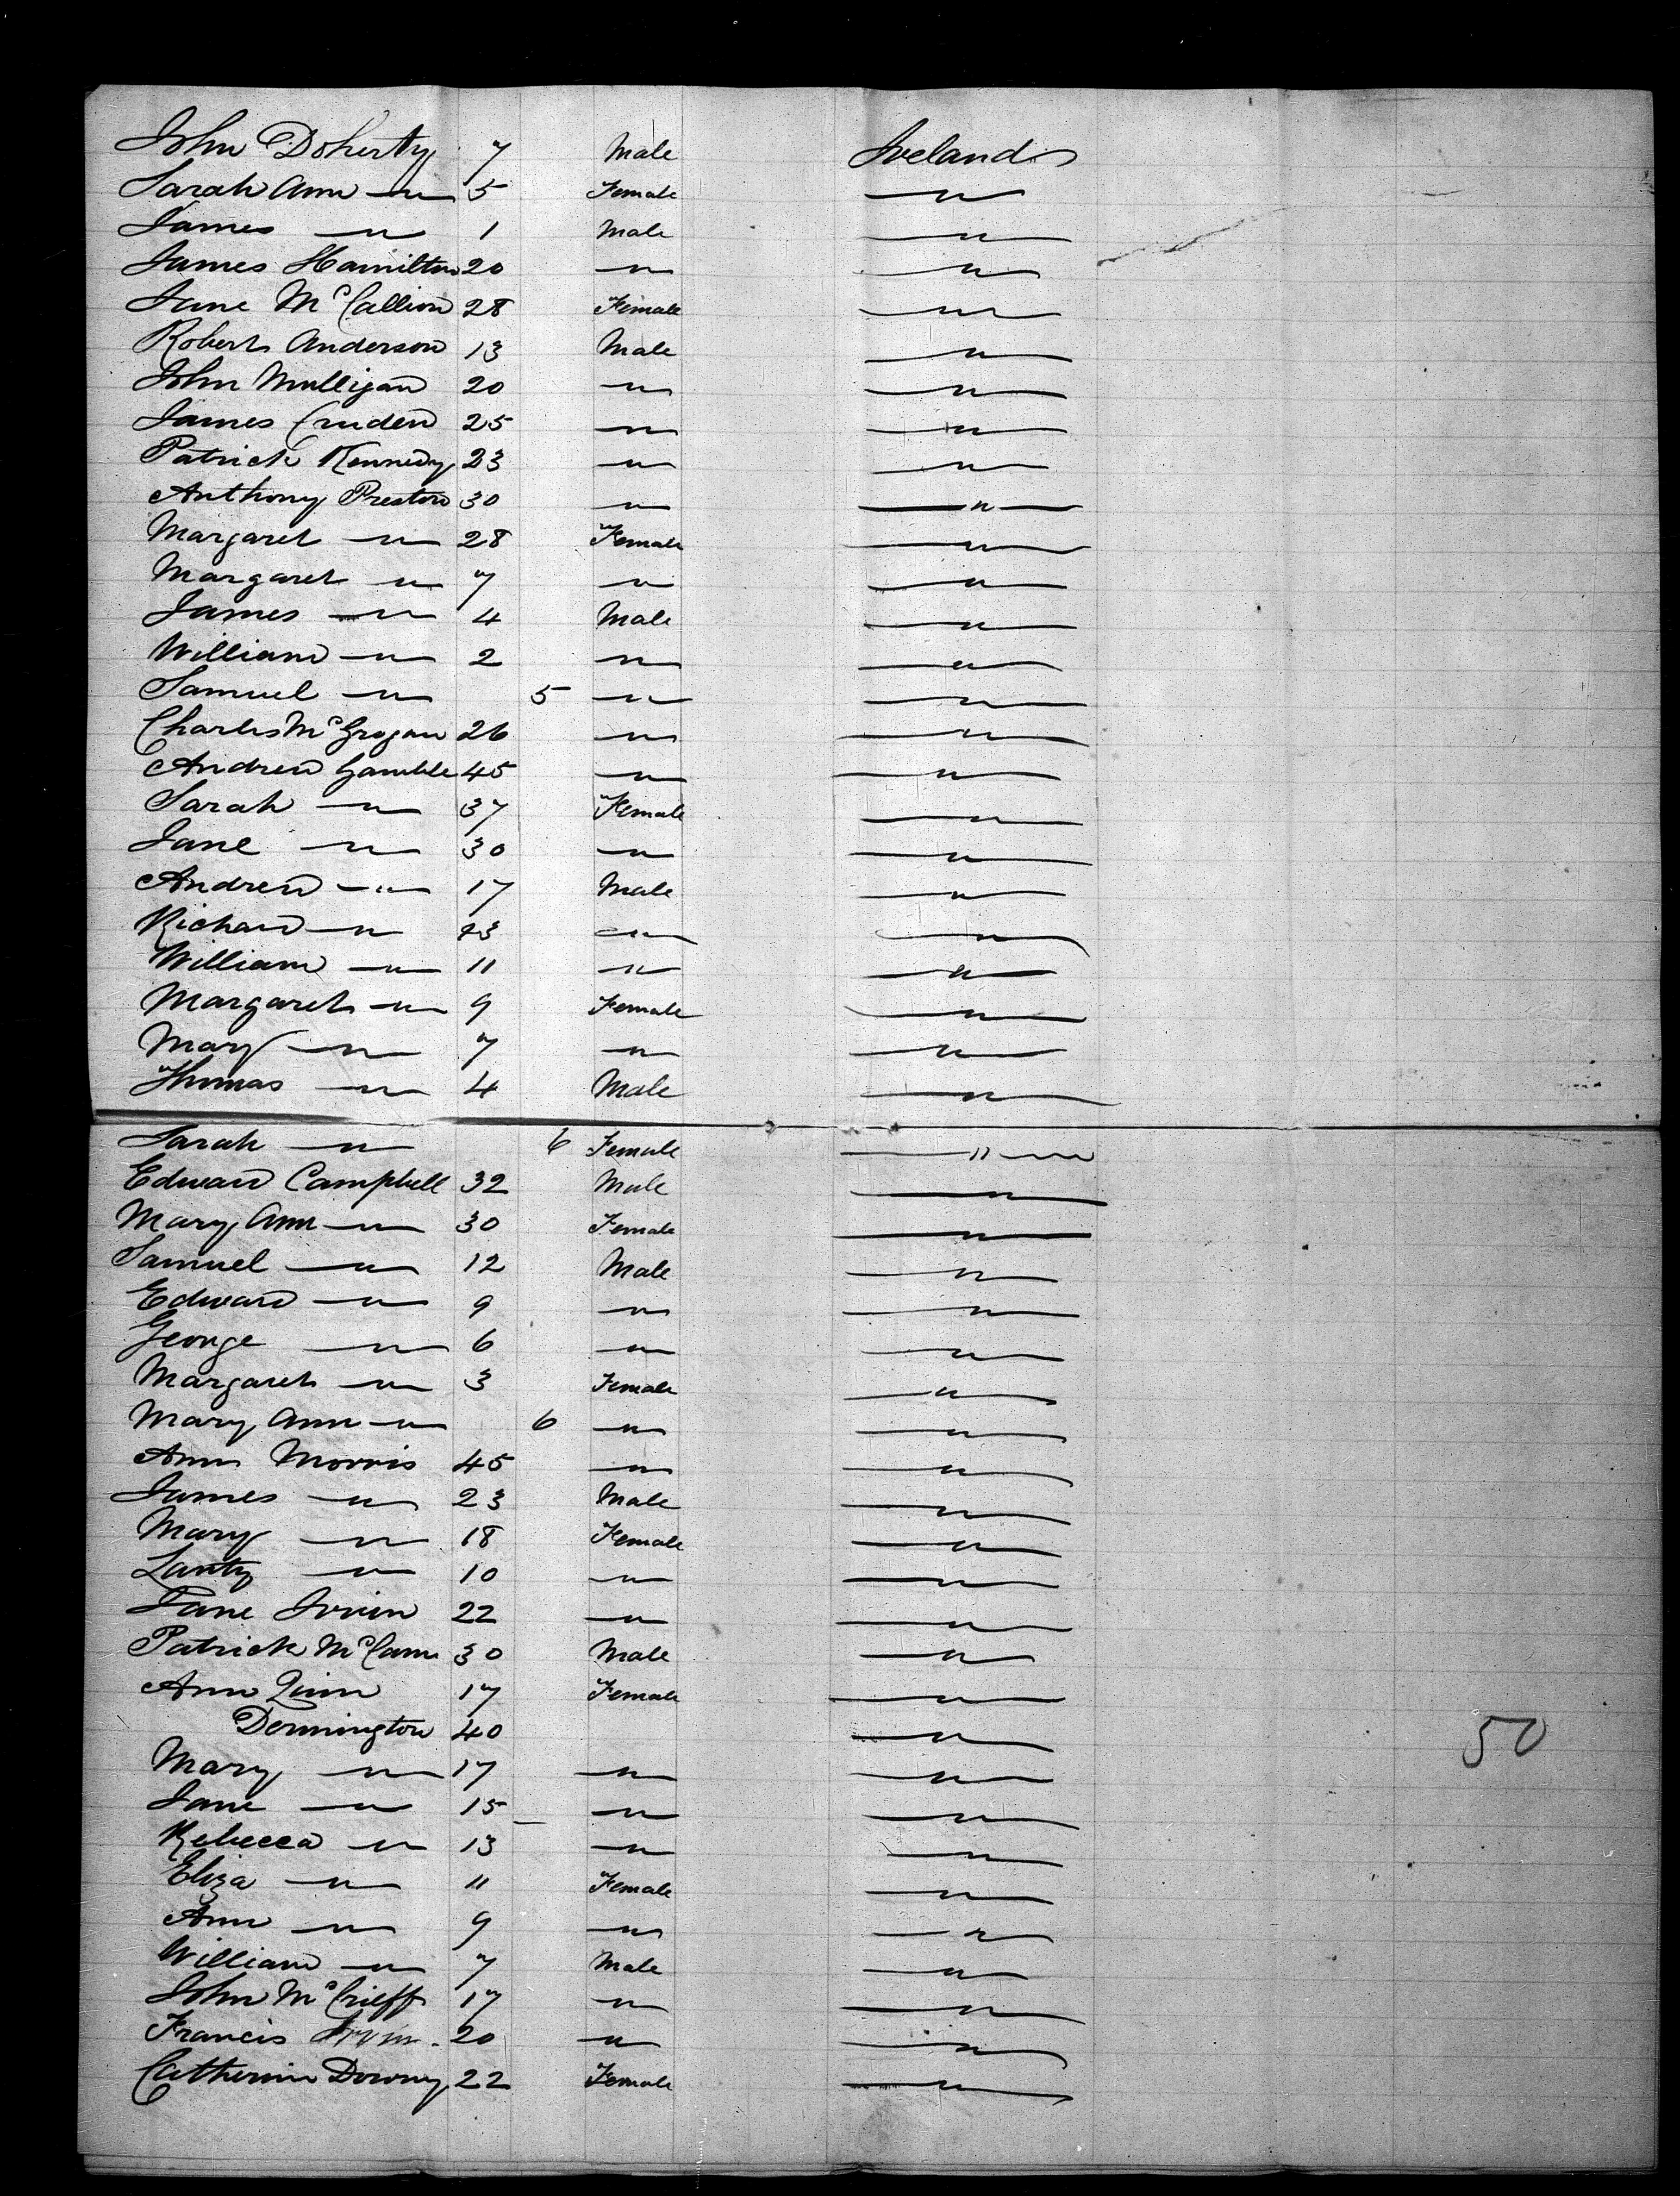 John Doherty 7 Male Ireland
Sarah Ann — " — 5 Female — " —
James — " — 1 Male — " —
James Hamilton 20 — " — — " —
Jane McCallion 28 Female — " —
Robert Anderson 13 Male — " —
John Mulligan 20 — " — — " —
James Cruden 25 — " — — " —
Patrick Kennedy 23 — " — — " —
Anthony Preston 30 — " — — " —
Margaret — " — 28 Female — " —
Margaret — " — 7 — " — — " —
James — " — 4 Male — " —
William — " — 2 — " — — " —
Samuel — " — 5 — " — — " —
Charles McGrogan 26 — " — — " —
Andrew Gamble 45 — " — — " —
Sarah — " — 37 Female — " —
Jane — " — 30 — " — — " —
Andrew — " — 17 Male — " —
Richard — " — 13 — " — — " —
William — " — 11 — " — — " —
Margaret — " — 9 Female — " —
Mary — " — 7 — " — — " —
Thomas — " — 4 Male — " —
Sarah — " — 6 Female — " —
Edward Campbell 32 Male — " —
Mary Ann — " — 30 Female — " —
Samuel — " — 12 Male — " —
Edward — " — 9 — " — — " —
George — " — 6 — " — — " —
Margaret — " — 3 Female — " —
Mary Ann — " — 6 — " — — " —
Ann Morris 45 — " — — " —
James — " — 23 Male — " —
Mary — " — 18 Female — " —
Lanty — " — 10 — " — — " —
Jane Irvin 22 — " — — " —
Patrick McCann 30 Male — " —
Ann Quinn 17 Female — " —
Dennington 40 — " — 50
Mary — " — 17 — " — — " —
Jane — " — 15 — " — — " —
Rebecca — " — 13 — " — — " —
Eliza — " — 11 Female — " —
Ann — " — 9 — " — — " —
William — " — 7 Male — " —
John McCrieff 17 — " — — " —
Francis Irvin 20 — " — — " —
Catherine Downy 22 Female — " —